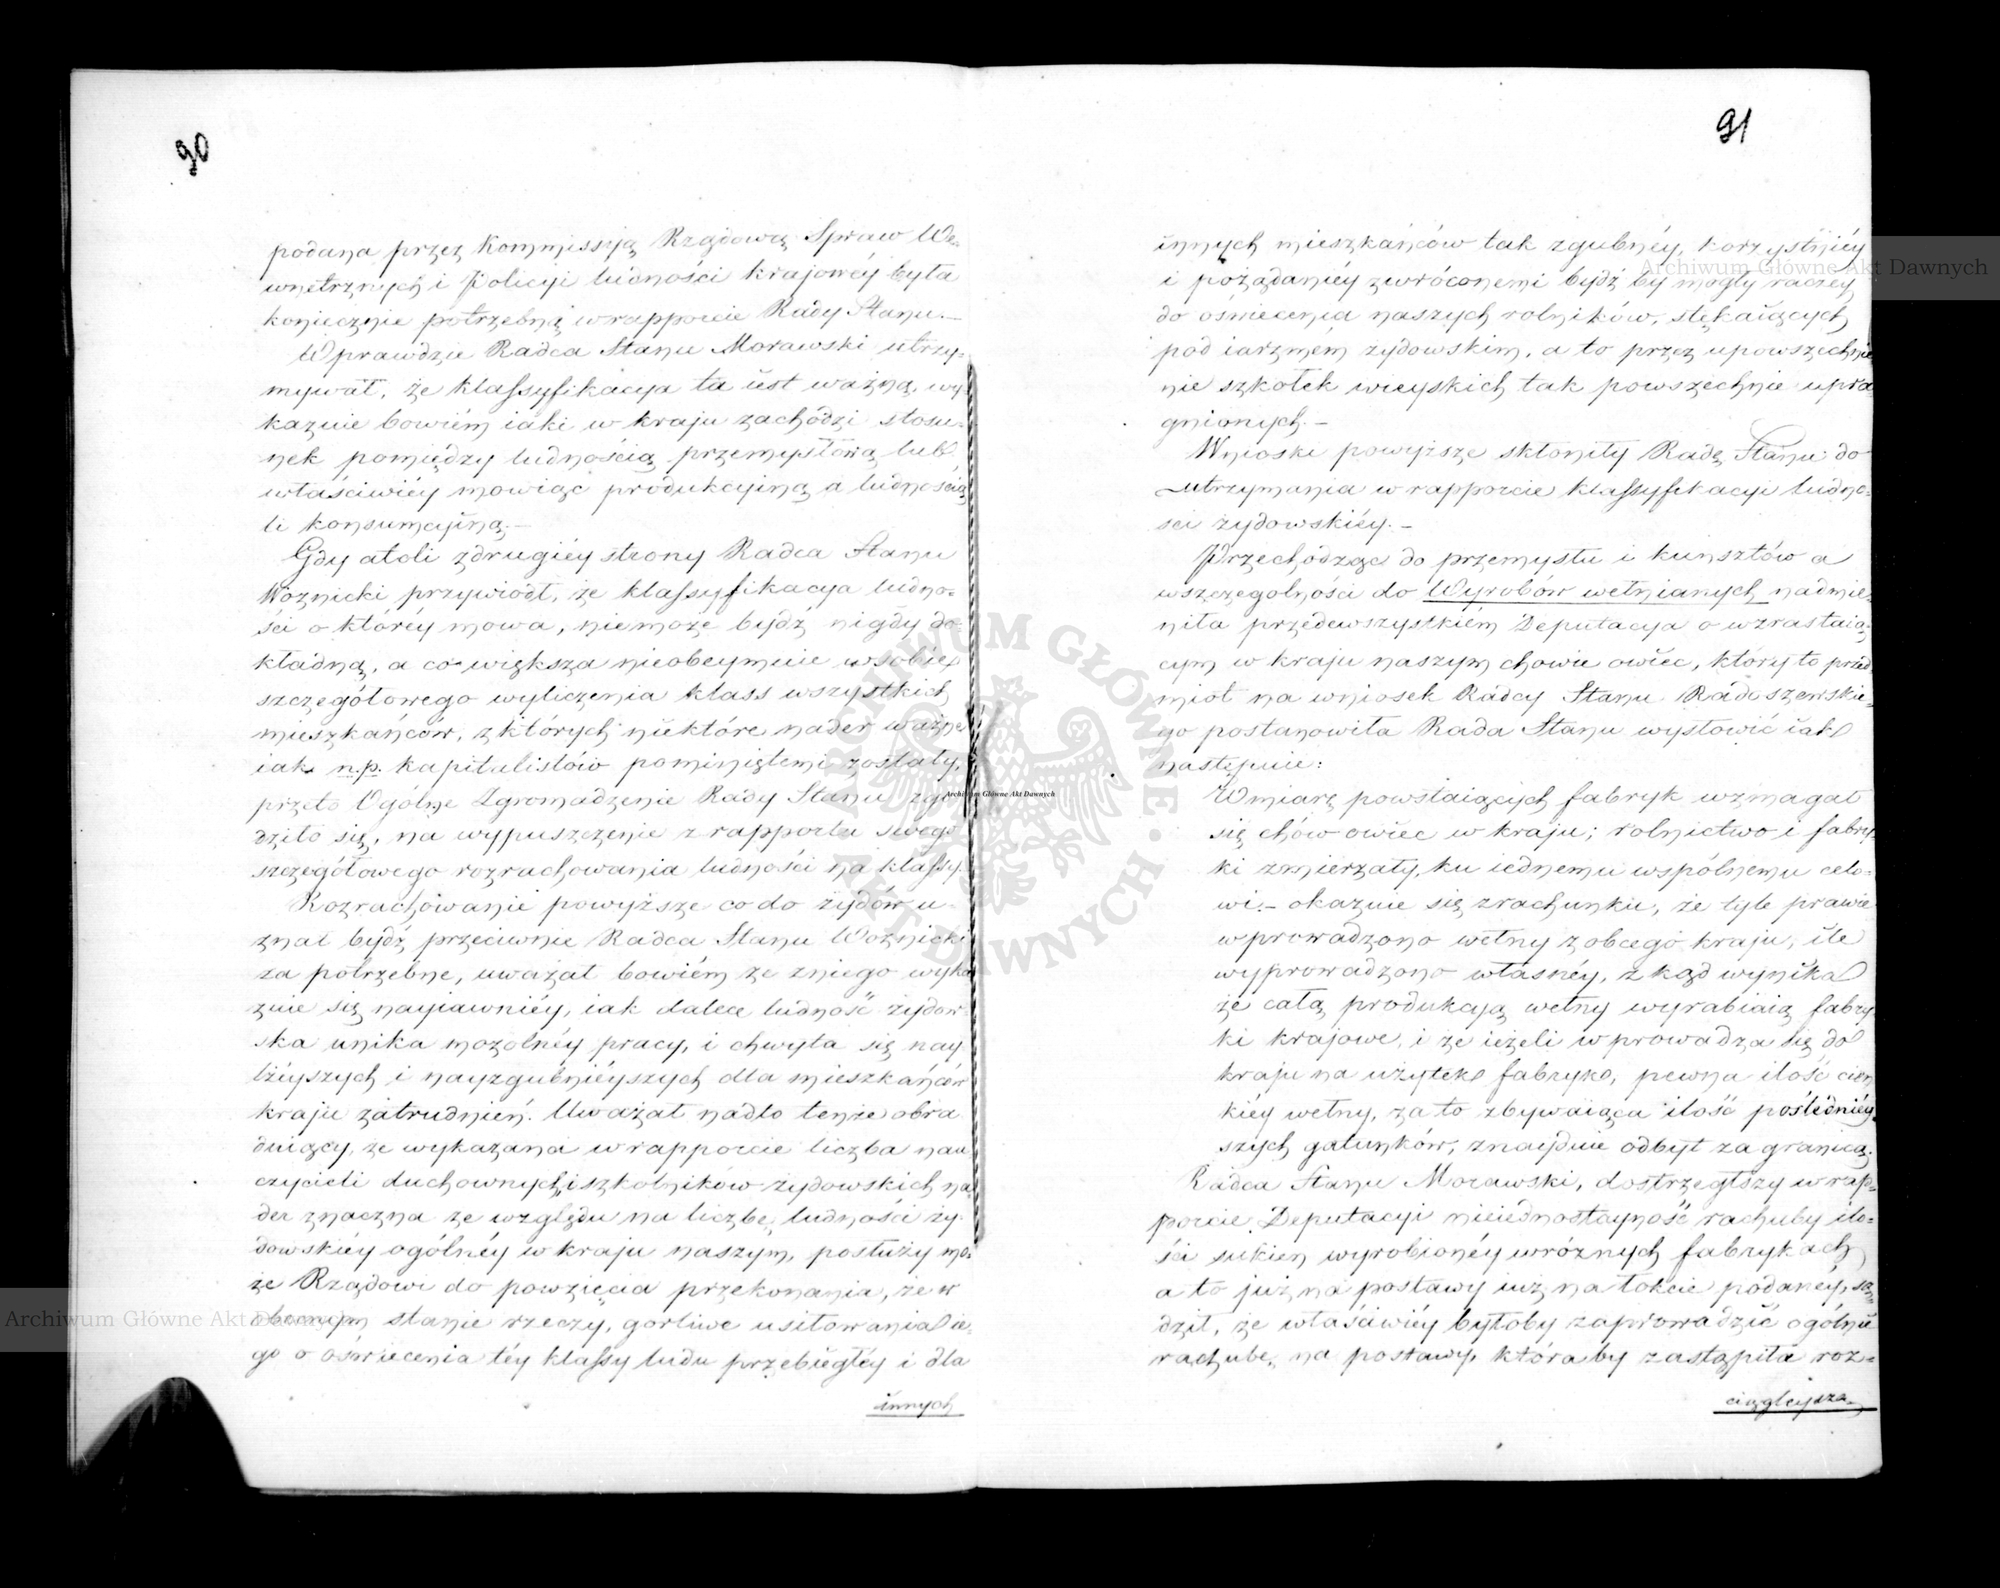 90
podana przez Kommissyją Rządową Spraw We-
wnętrznych i Policyi ludności krajowéy była
koniecznie potrzebną w rapporcie Rady Stanu. —
Wprawdzie Radca Stanu Morawski utrzy-
mywał, że klassyfikacya ta iest ważną, wy-
kazuie bowiém iaki w kraju zachodzi stosu-
nek pomiędzy ludnością przemysłową lub
właściwiéy mowiąc produkcyiną a ludnością
li konsumcyiną. —
Gdy atoli z drugiéy strony Radca Stanu
Woznicki przywiódł, że klassyfikacya ludno-
ści o któréy mowa, nie może bydź nigdy do-
kładną, a co większa nieobeymuie w sobie
szczegółowego wyliczenia klass wszystkich
mieszkańców, z których niektóre nader ważne
iak n.p. kapitalistów pominiętemi zostały,
przeto Ogólne Zgromadzenie Rady Stanu zgo-
dziło się, na wypuszczenie z rapportu swego
szczegółowego rozrachowania ludności na klassy.
Rozrachowanie powyższe co do żydów u-
znał bydź przeciwnie Radca Stanu Woznicki
za potrzebne, uważał bowiém że z niego wyka-
zuie się nayiawniéy, iak dalece ludność żydow-
ska unika mozolnéy pracy, i chwyta się nay-
lżéyszych i nayzgubniéyszych dla mieszkańców
kraju zatrudnień. Uważał nadto tenże obra-
duiący, że wykazana w rapporcie liczba nau-
czycieli duchownych, i szkolników żydowskich na-
der znaczna ze względu na liczbę ludności ży-
dowskiéy ogólnéy w kraju naszym, posłuży mo-
że Rządowi do powzięcia przekonania, że w
obecnym stanie rzeczy, gorliwe usiłowania ie-
go o oświecenia téy klassy ludu przebiegłéy i dla
innych
91
innych mieszkańców tak zgubnéy, korzystniéy
i pożądaniéy zwróconemi bydź by mogły raczéy
do oświecenia naszych rolników, stękaiących
pod iarzmém żydowskim, a to przez upowszechnie-
nie szkołek wieyskich tak powszechnie upra-
gnionych. —
Wnioski powyższe skłoniły Radę Stanu do
utrzymania w rapporcie klassyfikacyi ludno-
sci żydowskiéy. —
Przechodząc do przemysłu i kunsztów a
wszczegolności do Wyrobów wełnianych nadmie-
niła przedewszystkiém Deputacya o wzrastaią-
cym w kraju naszym chowie owiec, który to przed-
miot na wniosek Radcy Stanu Radoszewskie-
go postanowiła Rada Stanu wysłowić iak
następuie:
W miarę powstaiących fabryk wzmagał
się chów owiec w kraju; rolnictwo i fabry-
ki zmierzały, ku iednemu wspólnemu celo-
wi. — okazuie się z rachunku, że tyle prawie
wprowadzono wełny z obcego kraju, ile
wyprowadzono własnéy, z kąd wynika
że całą produkcją wełny wyrabiaią fabry-
ki krajowe, i że ieżeli wprowadza się do
kraju na użytek fabryk, pewna ilość cien-
kiéy wełny, za to zbywaiąca ilość poślédniéy-
szych gatunków, znayduie odbyt za granicą.
Radca Stanu Morawski, dostrzegłszy w rap-
porcie Deputacyi nieiédnostayność rachuby ilo-
ści sukien wyrobionéy w róznych fabrykach,
a to już na postawy iuż na łokcie podanéy, są-
dził, że właściwiéy byłoby zaprowadzić ogólną
rachubę, na postawy, która by zastąpiła roz-
ciągleyszą
Archiwum Główne Akt Dawnych
Archiwum Główne Akt Dawnych
Archiwum Główne Akt Dawnych
ARCHIWUM GŁÓWNE · AKT DAWNYCH ·